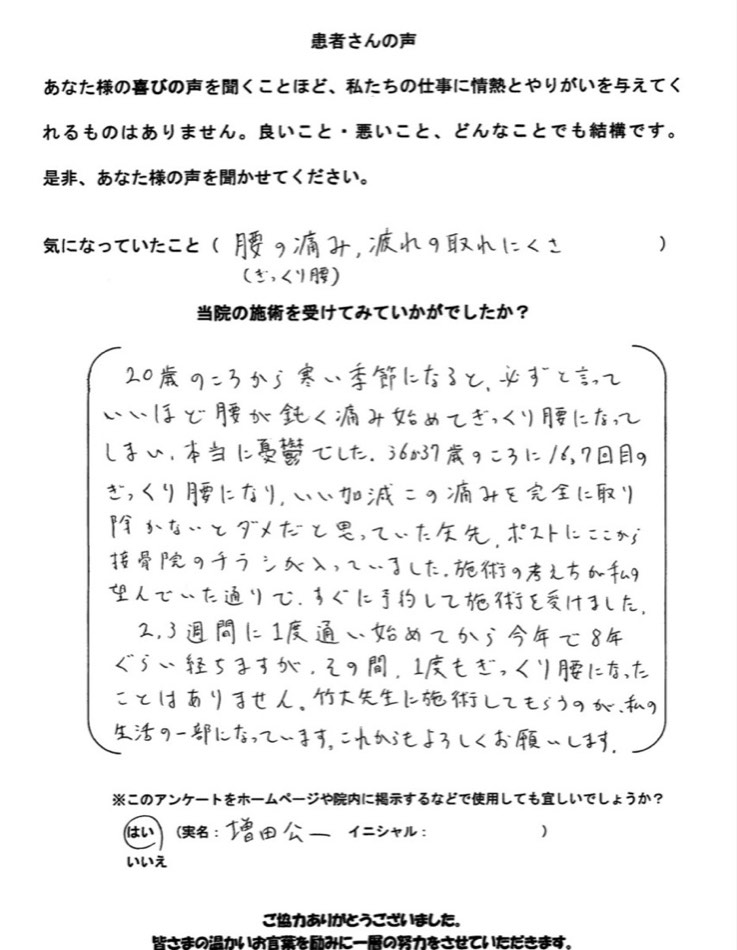 患者さんの声
あなた様の喜びの声を聞くことほど、私たちの仕事に情熱とやりがいを与えてく
れるものはありません。良いこと・悪いこと、どんなことでも結構です。
是非、あなた様の声を聞かせてください。
気になっていたこと（ 腰の痛み, 疲れの取れにくさ ）
(ぎっくり腰)
当院の施術を受けてみていかがでしたか？
20歳のころから寒い季節になると、必ずと言って
いいほど腰が鈍く痛み始めてぎっくり腰になって
しまい、本当に憂鬱でした。36か37歳のころに16,7回目の
ぎっくり腰になり、いい加減この痛みを完全に取り
除かないとダメだと思っていた矢先、ポストにここから
接骨院のチラシが入っていました。施術の考え方が私の
望んでいた通りで、すぐに予約して施術を受けました。
2,3週間に1度通い始めてから今年で8年
ぐらい経ちますが、その間、1度もぎっくり腰になった
ことはありません。竹大先生に施術してもらうのが、私の
生活の一部になっています。これからもよろしくお願いします。
※このアンケートをホームページや院内に掲示するなどで使用しても宜しいでしょうか？
はい （実名：増田公一 イニシャル： ）
いいえ
ご協力ありがとうございました。
皆さまの温かいお言葉を励みに一層の努力をさせていただきます。